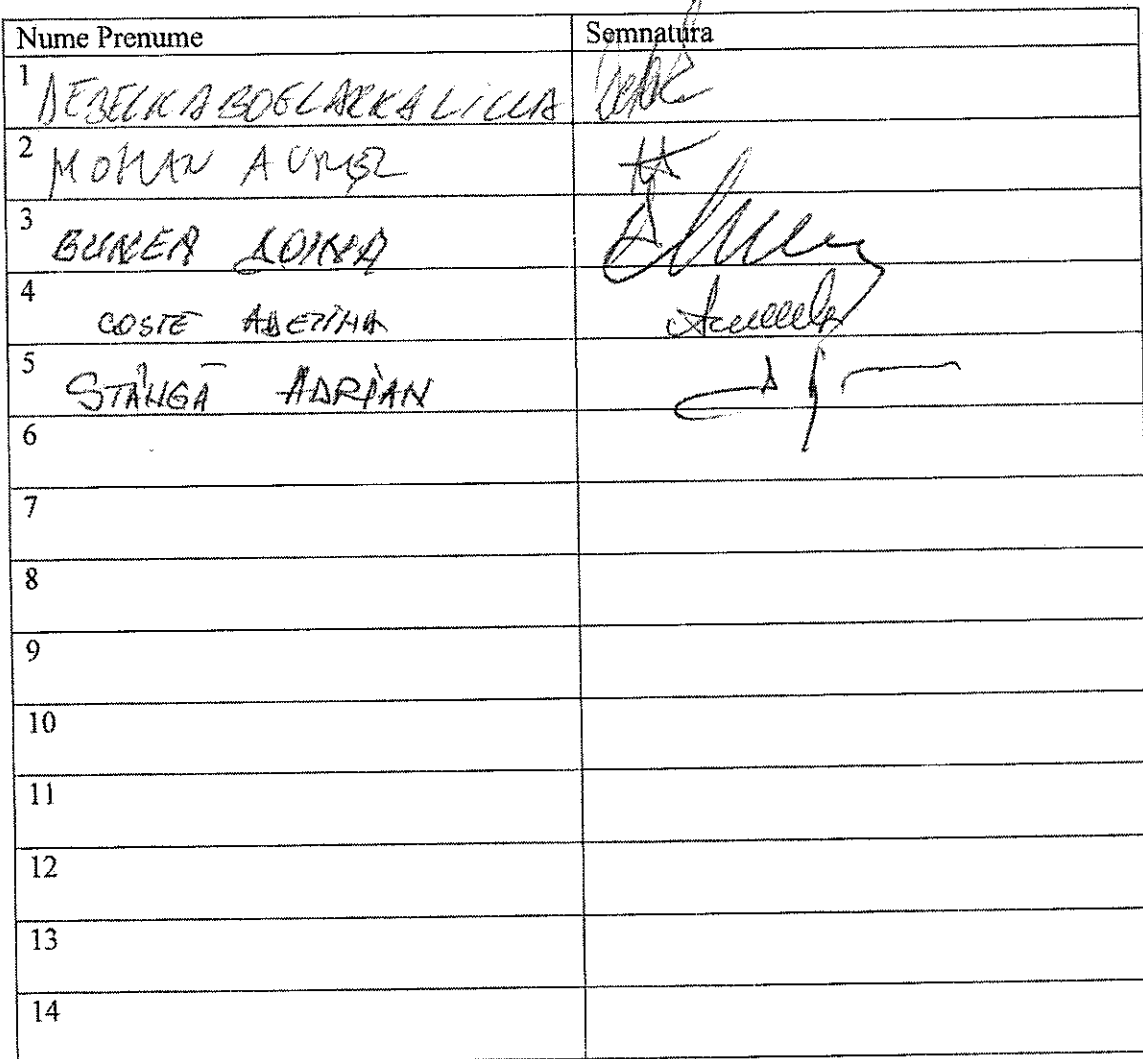 Nume Prenume Semnatura
1 DEBELKA BOGLARKA
2 MOHAN AUREL
3 BUNEA DOINA
4 COSTE
5 STÂNGĂ ADRIAN
6
7
8
9
10
11
12
13
14